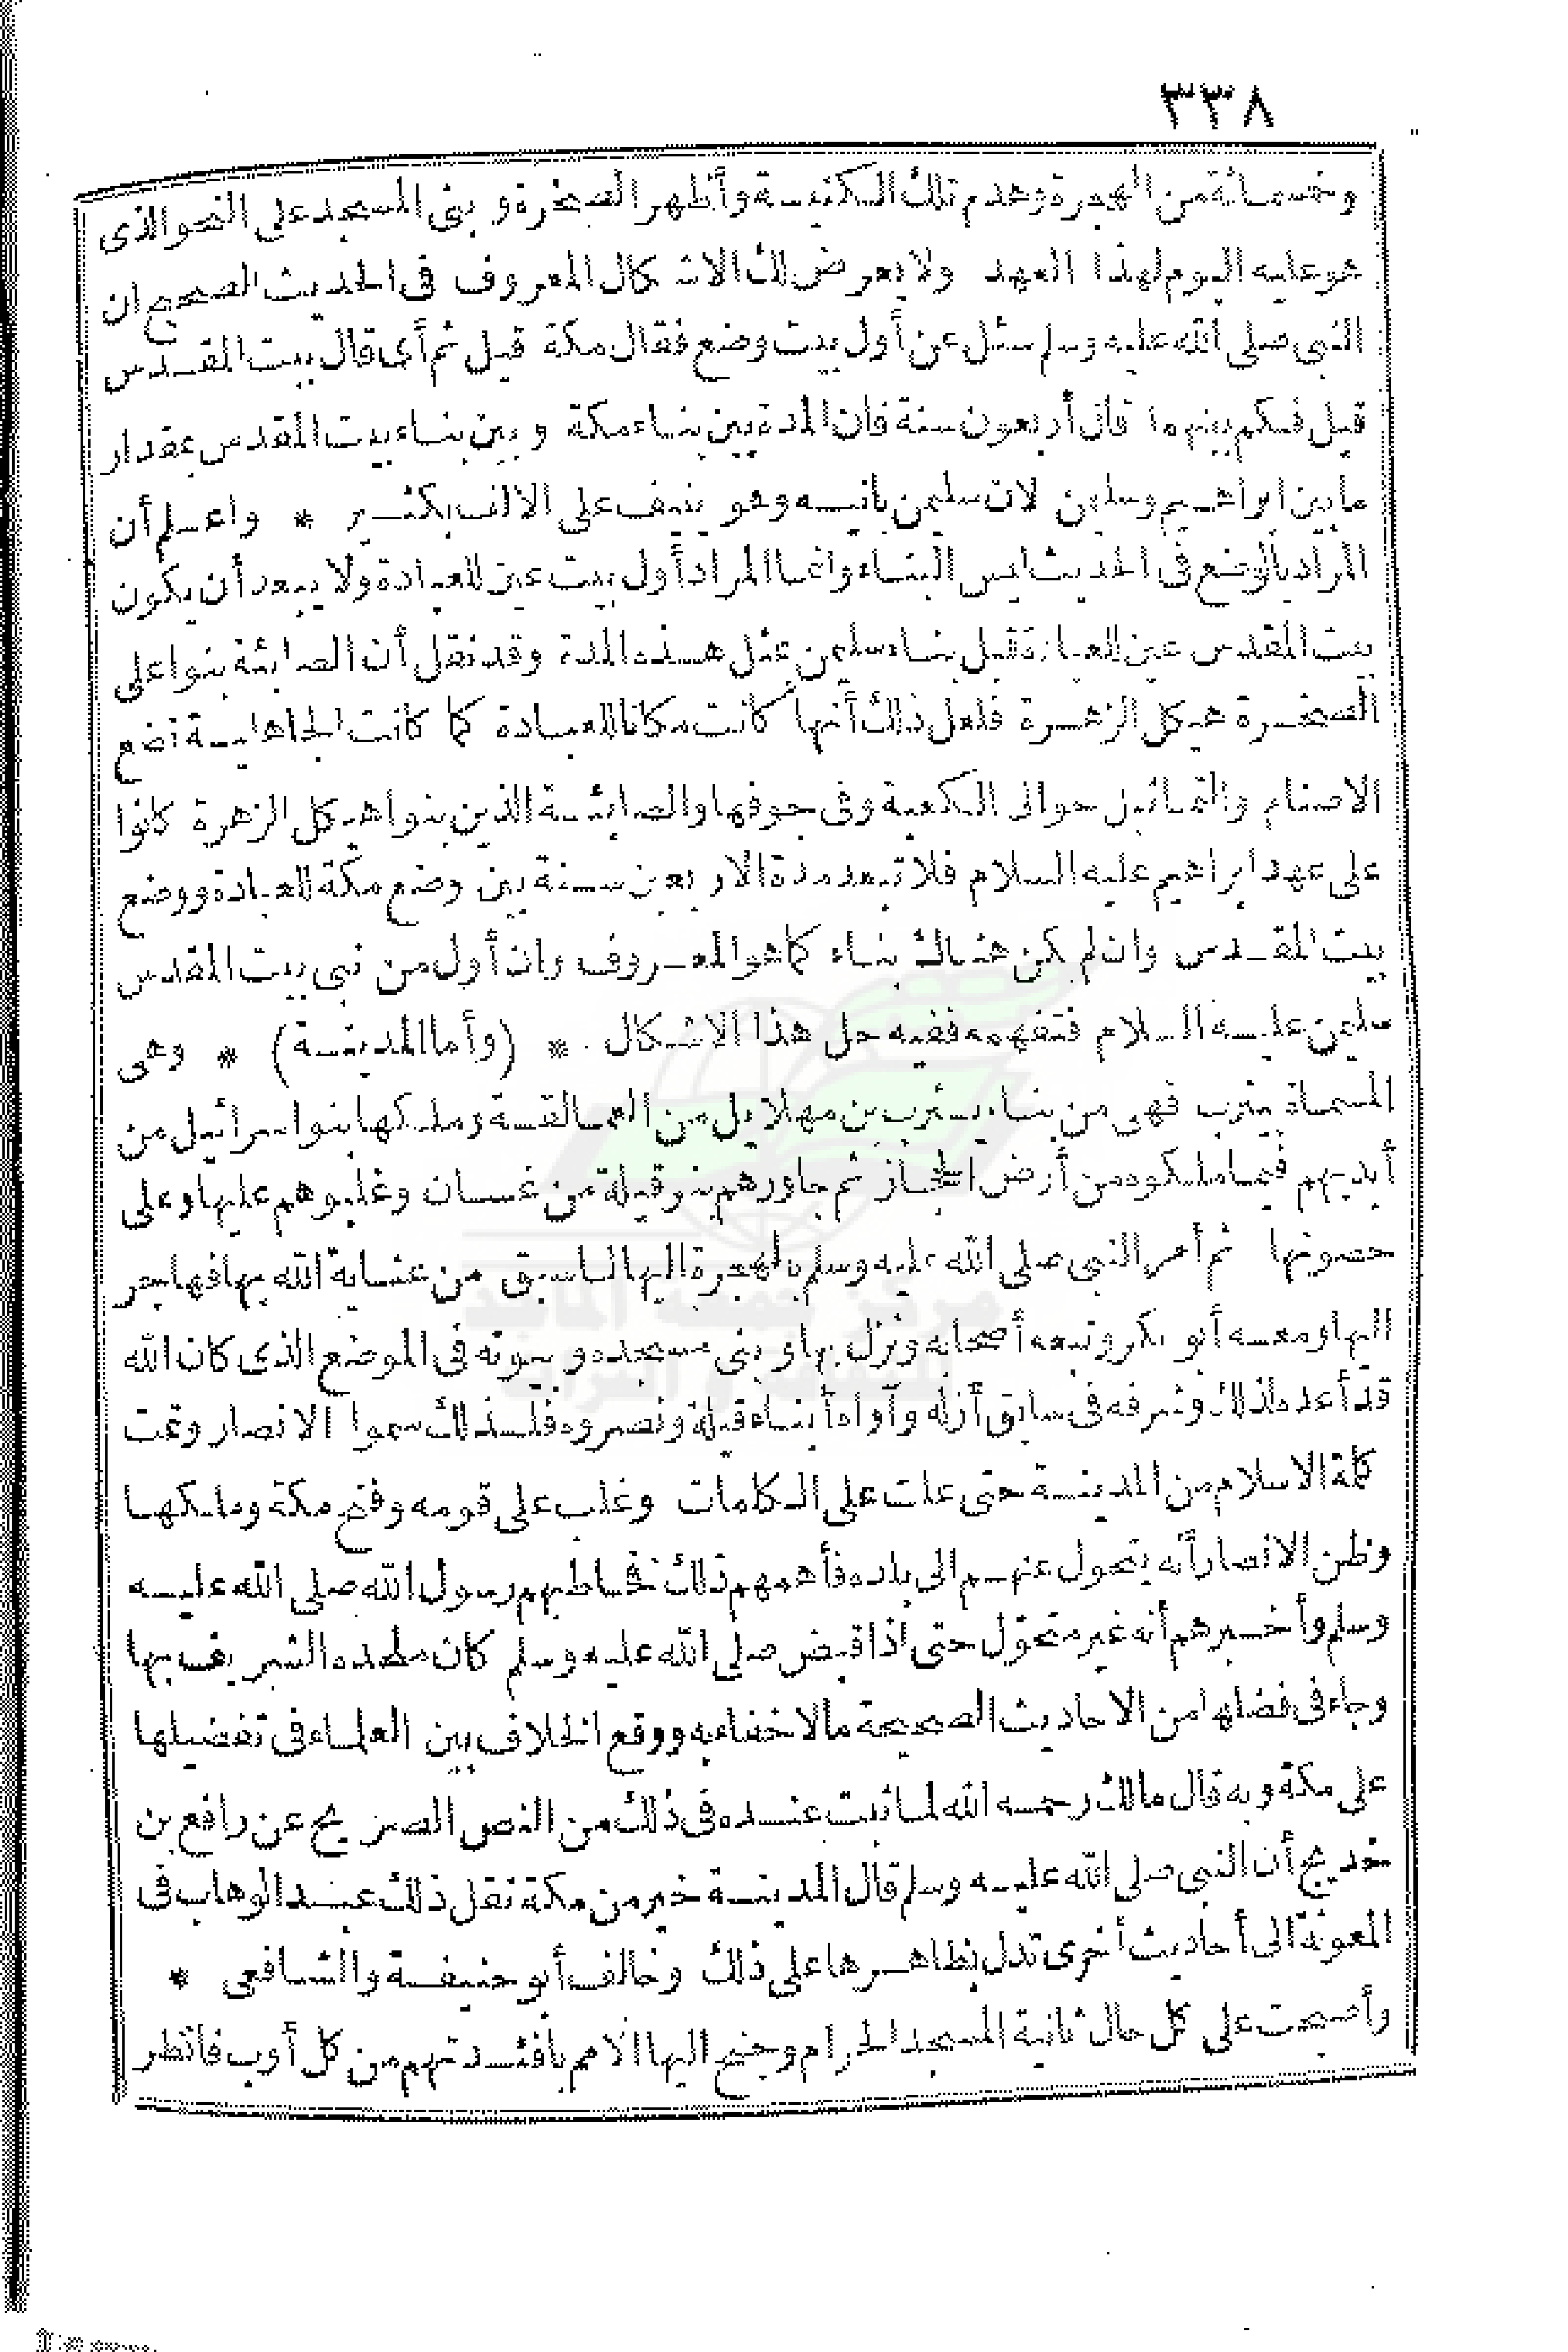 ٣٣٨
وخمسمائة من الهجرة وهدم تلك الكنيسة وأظهر الصخرة و بنى المسجد على النحو الذى
هو عليه اليوم لهذا العهد ولا يعرض لك الاشكال المعروف فى الحديث الصحيح ان
النبى صلى الله عليه وسلم سئل عن أول بيت وضع فقال مكة قيل ثم أى قال بيت المقدس
قيل فكم بينهما قال أربعون سنة فان المدة بين بناء مكة و بين بناء بيت المقدس بمقدار
ما بين ابراهيم وسليمن لان سليمن بانيه وهو ينيف على الالف بكثير * واعلم أن
المراد بالوضع فى الحديث ليس البناء وانما المراد أول بيت عين للعبادة ولا يبعد أن يكون
بيت المقدس عين للعبادة قبل بناء سليمن بمثل هذه المدة وقد نقل أن الصابئة بنوا على
الصخرة هيكل الزهرة فلعل ذلك أنها كانت مكانا للعبادة كما كانت الجاهلية تضع
الاصنام والتماثيل حوالى الكعبة وفى جوفها والصابئة الذين بنوا هيكل الزهرة كانوا
على عهد ابراهيم عليه السلام فلا تبعد مدة الاربعين سنة بين وضع مكة للعبادة ووضع
بيت المقدس وان لم يكن هناك بناء كما هو المعروف وان أول من بنى بيت المقدس
سليمن عليه السلام فتفهمه ففيه حل هذا الاشكال * (وأما المدينة) * وهى
المسماة يثرب فهى من بناء يثرب بن مهلايل من العمالقة وملكها بنو اسرائيل من
أيديهم فيما ملكوه من أرض الحجاز ثم جاورهم بنو قيلة من غسان وغلبوهم عليها وعلى
حصونها ثم أمر النبى صلى الله عليه وسلم بالهجرة اليها لما سبق من عناية الله بها فهاجر
اليها ومعه أبو بكر وتبعه أصحابه ونزل بها و بنى مسجده و بيوته فى الموضع الذى كان الله
قد أعده لذلك وشرفه فى سابق أزله وآواه أبناء قيلة ونصروه فلذلك سموا الانصار وتمت
كلمة الاسلام من المدينة حتى علت على الكلمات وغلب على قومه وفتح مكة وملكها
وظن الانصار أنه يتحول عنهم الى بلده فأهمهم ذلك فخاطبهم رسول الله صلى الله عليه
وسلم وأخبرهم أنه غير متحوّل حتى اذا قبض صلى الله عليه وسلم كان ملحده الشريف بها
وجاء فى فضلها من الاحاديث الصحيحة مالا خفاء به ووقع الخلاف بين العلماء فى تفضيلها
على مكة وبه قال مالك رحمه الله لما ثبت عنده فى ذلك من النص الصريح عن رافع بن
خديج أن النبى صلى الله عليه وسلم قال المدينة خير من مكة نقل ذلك عبد الوهاب فى
المعونة الى أحاديث أخرى تدل بظاهرها على ذلك وخالف أبو حنيفة والشافعى *
وأصبحت على كل حال ثانية المسجد الحرام وجنح اليها الامم بأفئدتهم من كل أوب فانظر
مركز جمعة الماجد
للثقافة و التراث